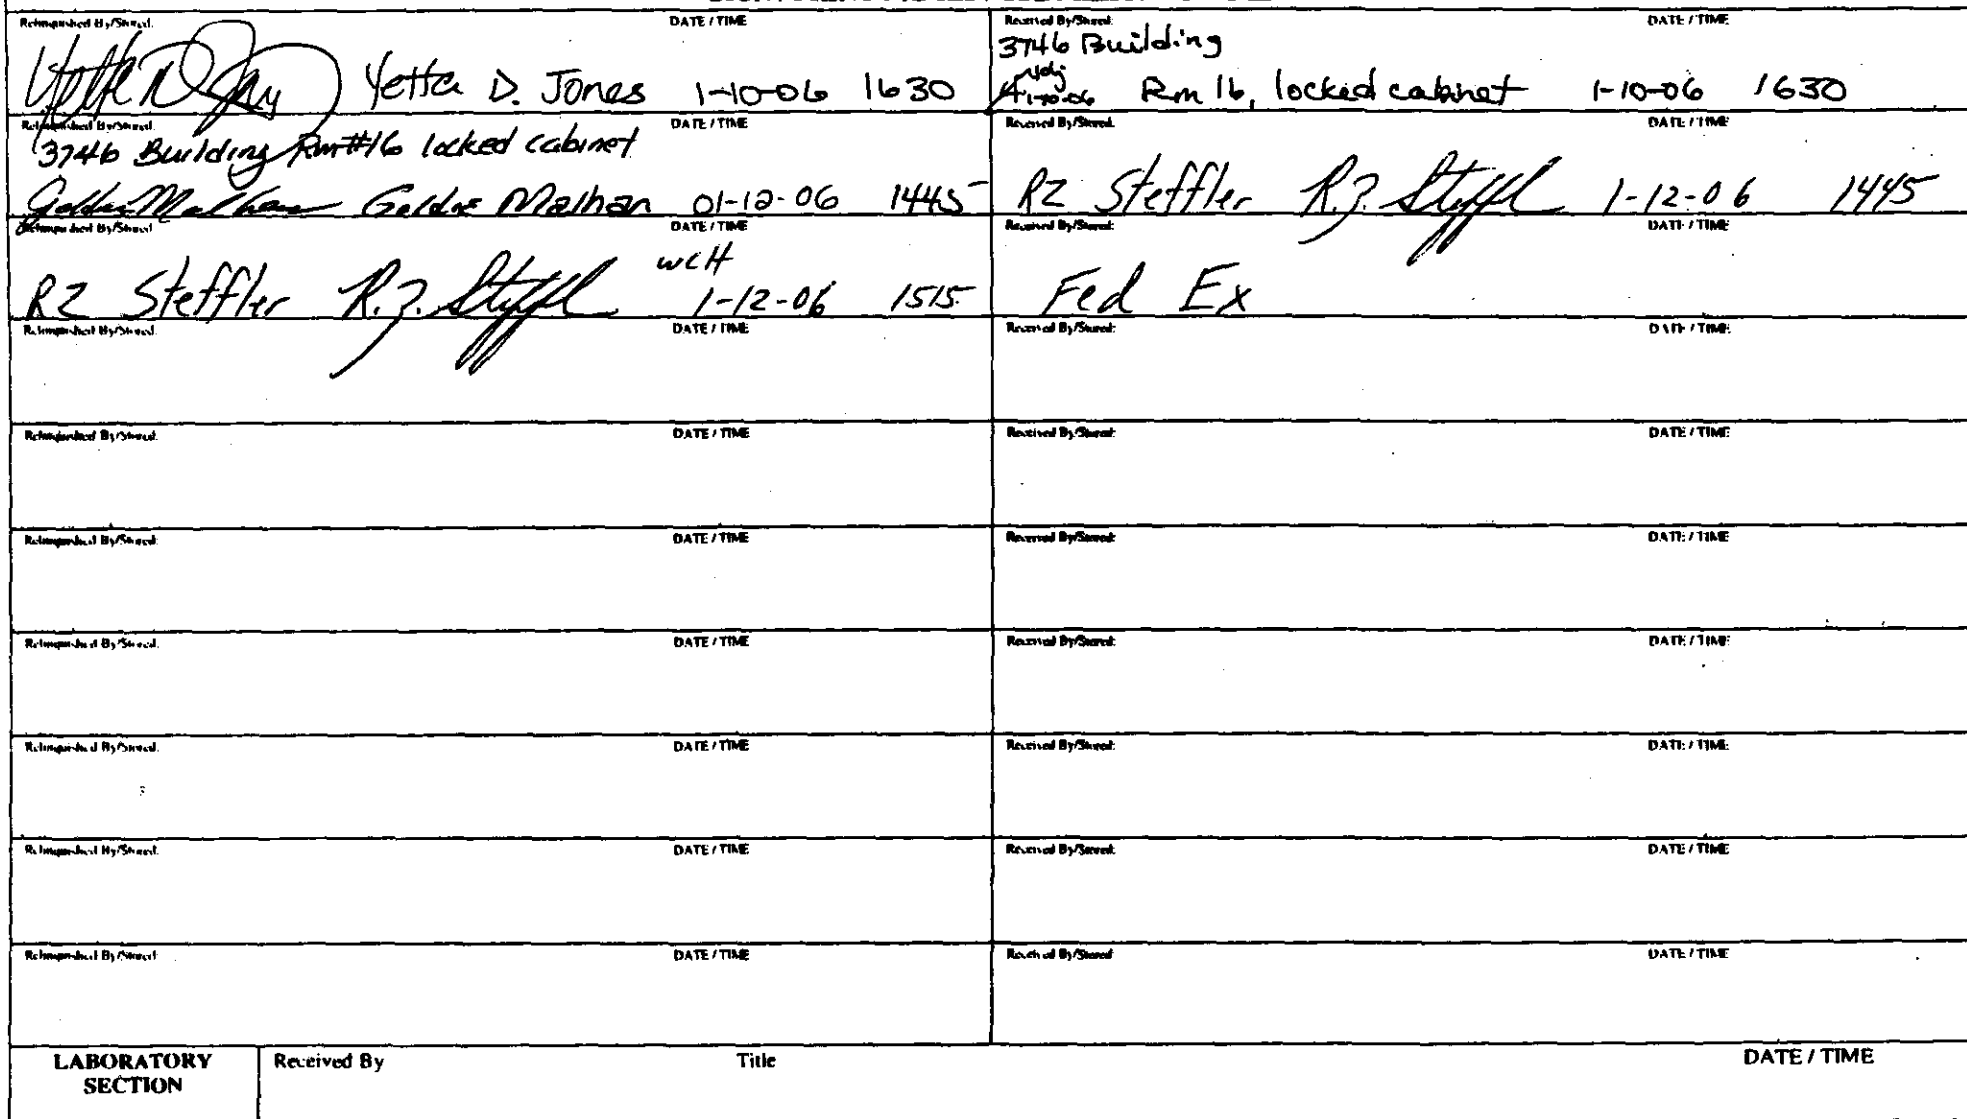 Relinquished By/Stored: DATE / TIME Received By/Stored: DATE / TIME
3746 Building
Yetta D. Jones 1-10-06 1630 ydj 1-10-06 Rm 16, locked cabinet 1-10-06 1630
Relinquished By/Stored: DATE / TIME Received By/Stored: DATE / TIME
3746 Building Rm#16 locked cabinet
Goldie Malhan 01-12-06 1445 RZ Steffler R.Z. Steffl 1-12-06 1445
Relinquished By/Stored: DATE / TIME Received By/Stored: DATE / TIME
WCH
RZ Steffler R.Z. Steffl 1-12-06 1515 Fed Ex
Relinquished By/Stored: DATE / TIME Received By/Stored: DATE / TIME
Relinquished By/Stored: DATE / TIME Received By/Stored: DATE / TIME
Relinquished By/Stored: DATE / TIME Received By/Stored: DATE / TIME
Relinquished By/Stored: DATE / TIME Received By/Stored: DATE / TIME
Relinquished By/Stored: DATE / TIME Received By/Stored: DATE / TIME
Relinquished By/Stored: DATE / TIME Received By/Stored: DATE / TIME
Relinquished By/Stored: DATE / TIME Received By/Stored DATE / TIME
LABORATORY SECTION Received By Title DATE / TIME